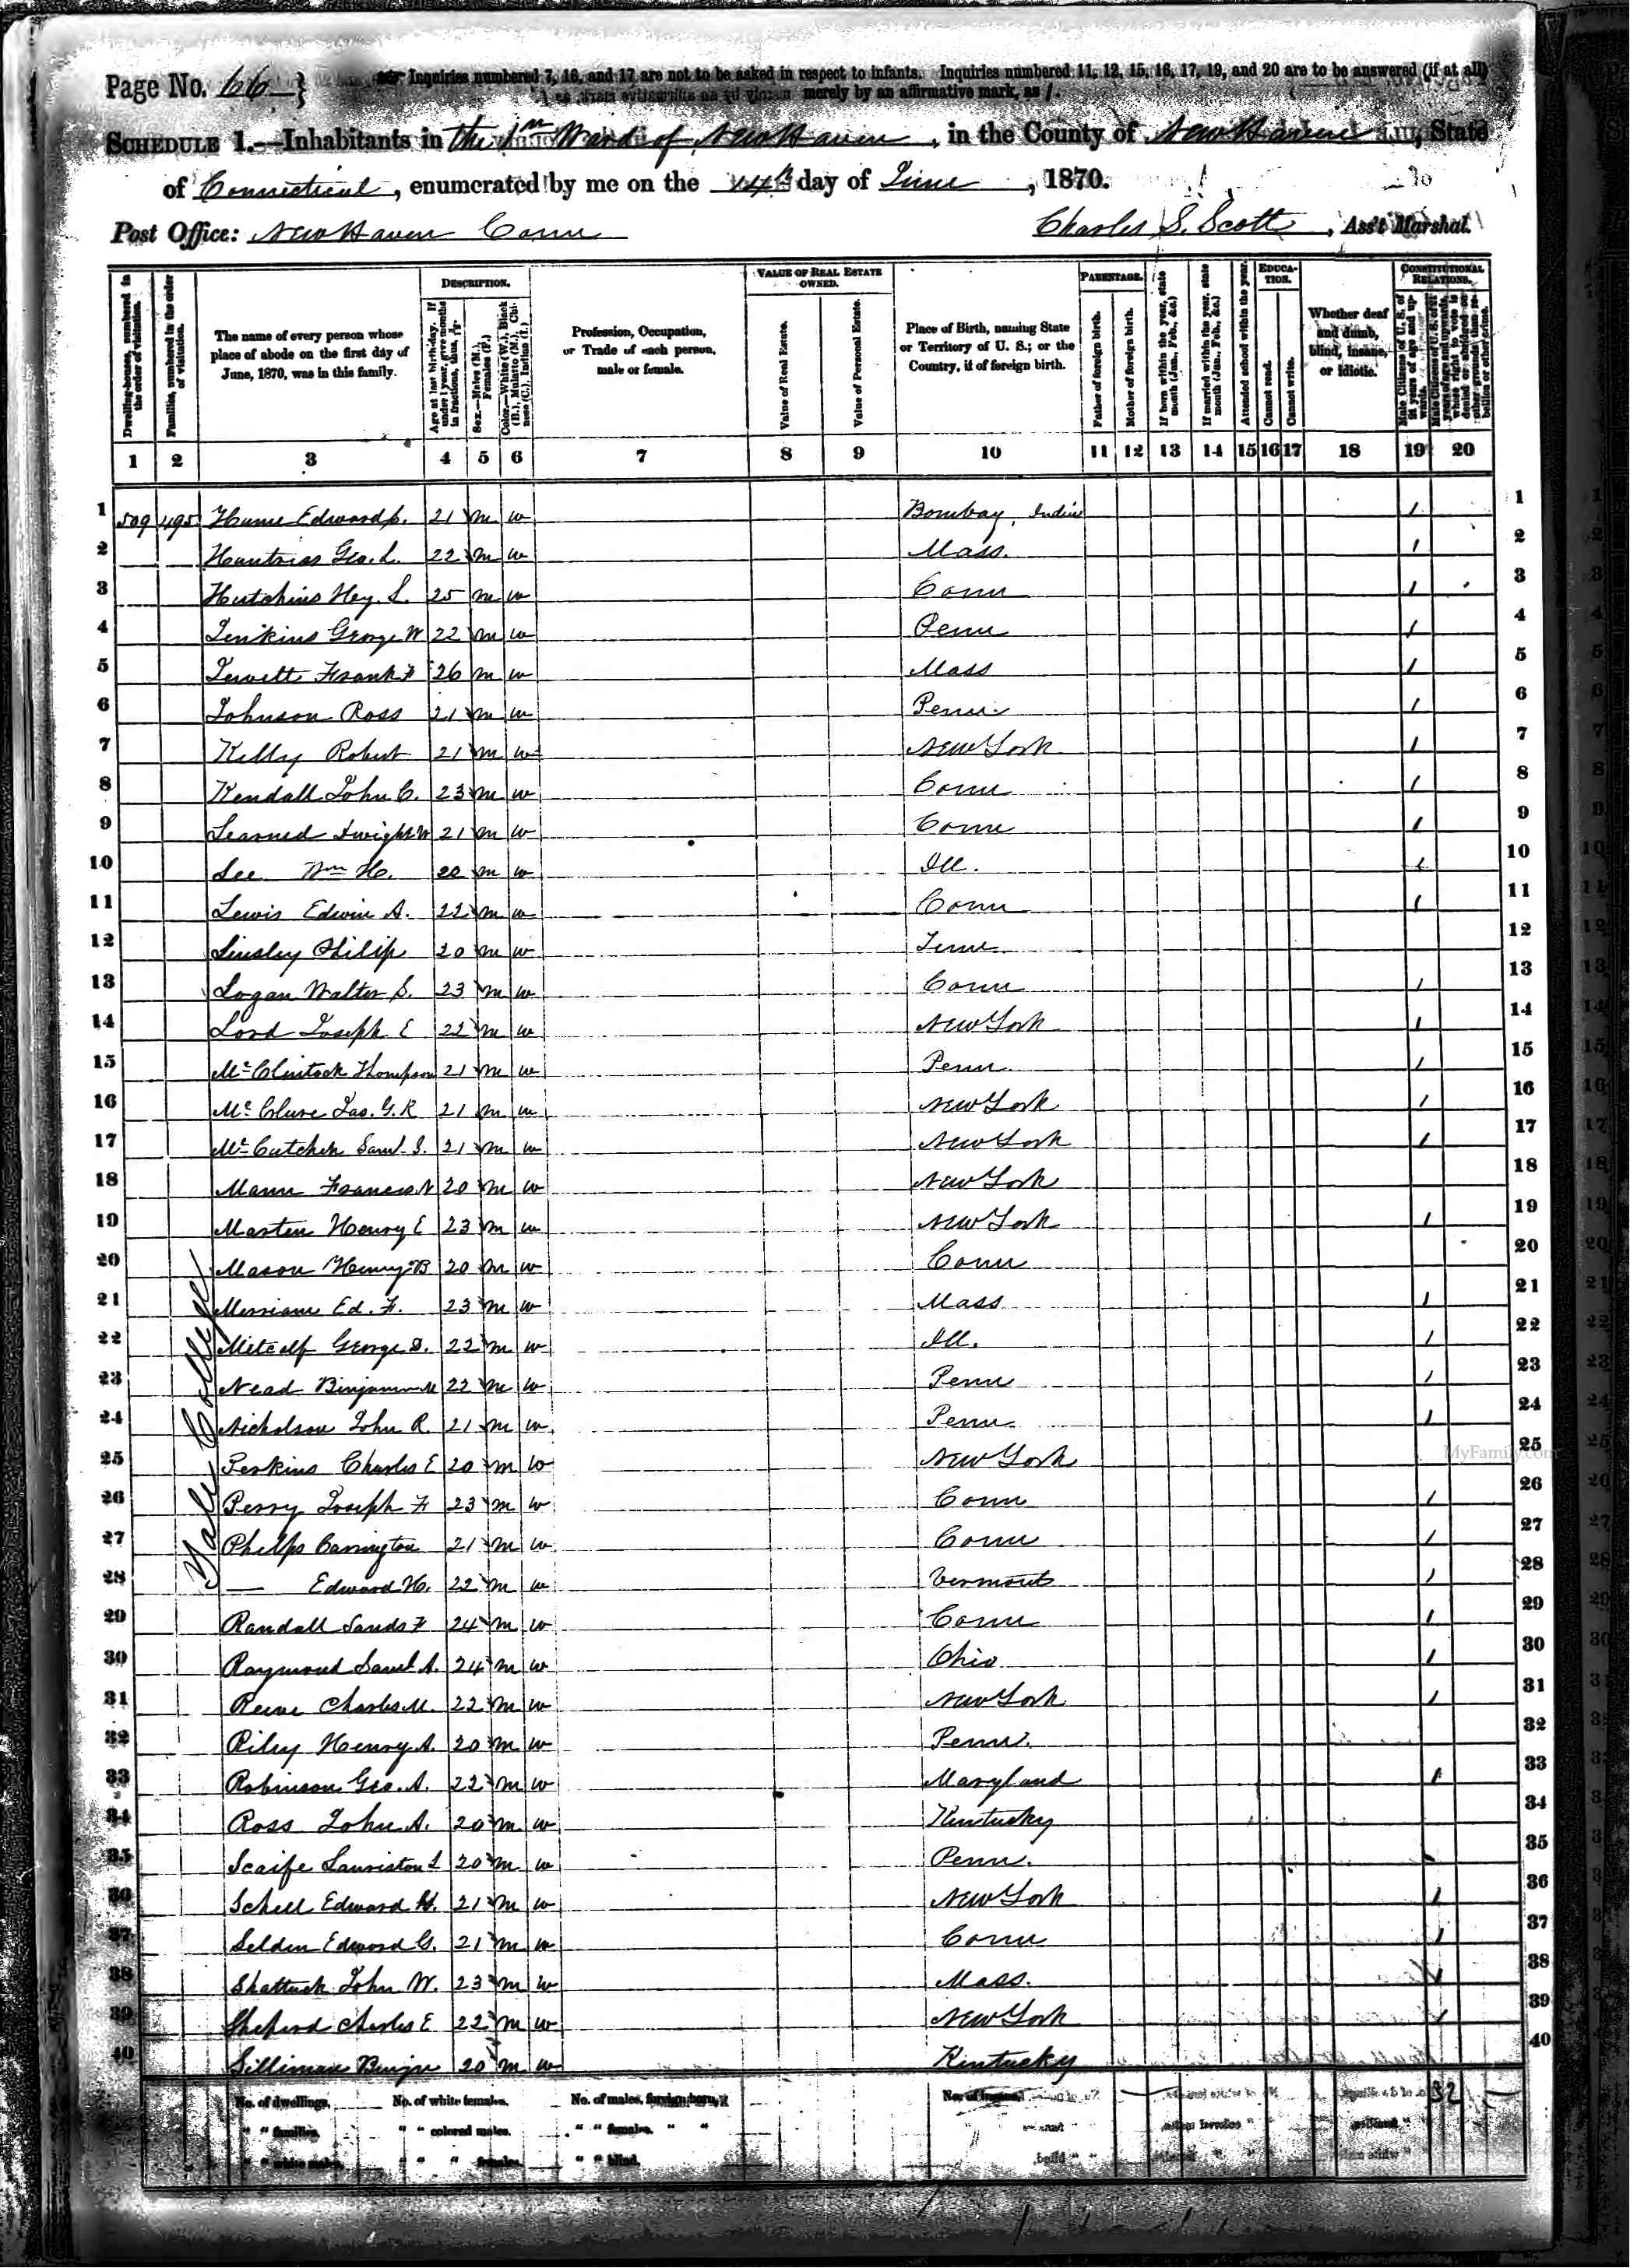 Page No. 66 } Inquiries numbered 7, 16, and 17 are not to be asked in respect to infants. Inquiries numbered 11, 12, 15, 16, 17, 19, and 20 are to be answered (if at all)
merely by an affirmative mark, as /.
SCHEDULE 1.—Inhabitants in the 1st Ward of New Haven, in the County of New Haven, State
of Connecticut, enumerated by me on the 14th day of June, 1870.
Post Office: New Haven Conn Charles S. Scott, Ass't Marshal.
Dwelling-houses, numbered in the order of visitation.
Families, numbered in the order of visitation.
The name of every person whose place of abode on the first day of June, 1870, was in this family.
DESCRIPTION.
Age at last birth-day. If under 1 year, give months in fractions, thus,
Sex.—Males (M.), Females (F.)
Color.—White (W.), Black (B.), Mulatto (M.), Chinese (C.), Indian (I.)
Profession, Occupation, or Trade of each person, male or female.
VALUE OF REAL ESTATE OWNED.
Value of Real Estate.
Value of Personal Estate.
Place of Birth, naming State or Territory of U. S.; or the Country, if of foreign birth.
PARENTAGE.
Father of foreign birth.
Mother of foreign birth.
If born within the year, state month (Jan., Feb., &c.)
If married within the year, state month (Jan., Feb., &c.)
Attended school within the year.
EDUCATION.
Cannot read.
Cannot write.
Whether deaf and dumb, blind, insane, or idiotic.
CONSTITUTIONAL RELATIONS.
Male Citizens of U. S. of 21 years of age and upwards.
Male Citizens of U. S. of 21 years of age and upwards, whose right to vote is denied or abridged on other grounds than rebellion or other crime.
1 2 3 4 5 6 7 8 9 10 11 12 13 14 15 16 17 18 19 20
1 509 495 Hume Edward S. 21 m w Bombay, India / 1
2 Huntress Geo. L. 22 m w Mass. / 2
3 Hutchins Hey. L. 25 m w Conn / 3
4 Jenkins George W 22 m w Penn / 4
5 Jewett Frank F 26 m w Mass / 5
6 Johnson Ross 21 m w Penn. / 6
7 Kelly Robert 21 m w New York / 7
8 Kendall John C. 23 m w Conn / 8
9 Learned Dwight W 21 m w Conn / 9
10 Lee Wm H. 22 m w Ill. / 10
11 Lewis Edwin A. 22 m w Conn / 11
12 Linsley Philip 20 m w Tenn 12
13 Logan Walter S. 23 m w Conn / 13
14 Lord Joseph E 22 m w New York / 14
15 McClintock Thompson 21 m w Penn / 15
16 McClure Jas. G. K 21 m w New York / 16
17 McCutchen Saml. S. 21 m w New York / 17
18 Mann Francis N 20 m w New York 18
19 Marten Henry E 23 m w New York / 19
20 Mason Henry B 20 m w Conn 20
21 Merriam Ed. F. 23 m w Mass / 21
22 Metcalf George D. 22 m w Ill. / 22
23 Nead Binjamin M 22 m w Penn / 23
24 Nicholson John R. 21 m w Penn / 24
25 Perkins Charles E 20 m w New York 25
26 Perry Joseph F 23 m w Conn / 26
27 Phelps Carrington 21 m w Conn / 27
28 — Edward H. 22 m w Vermont / 28
29 Randall Sands F 24 m w Conn / 29
30 Raymond Saml A. 24 m w Ohio / 30
31 Reeve Charles M. 22 m w New York / 31
32 Riley Henry A. 20 m w Penn. 32
33 Robinson Geo. A. 22 m w Maryland / 33
34 Ross John A. 20 m w Kentucky 34
35 Scaife Lauriston L 20 m w Penn. 35
36 Schell Edward H. 21 m w New York / 36
37 Selden Edward G. 21 m w Conn / 37
38 Shattuck John W. 23 m w Mass. / 38
39 Sheperd Charles E 22 m w New York / 39
40 Silliman Benjn 20 m w Kentucky 40
Yale College
MyFamily.com
No. of dwellings, No. of white females, No. of males, foreign born, No. of insane, 32
" " families, " " colored males, " " females, " "
" " white males, " " females, " " blind,